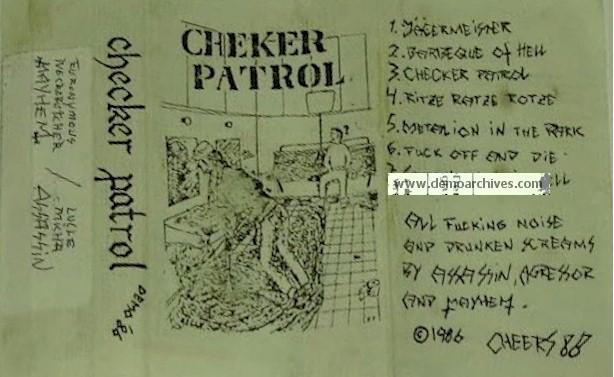 EURONYMOUS
NECROBUTCHER
MAYHEM
/
- MICHA
ASSASSIN
checker patrol DEMO 86
CHEKER
PATROL
1. JÄGERMEISTER
2. BARBEQUE OF HELL
3. CHECKER PATROL
4. RITZE RATZE ROTZE
5. METALION IN THE PARK
6. FUCK OFF AND DIE
www.demoarchives.com
ALL FUCKING NOISE
AND DRUNKEN SCREAMS
BY ASSASSIN, AGRESSOR
AND MAYHEM.
©1986 CHEERS 88